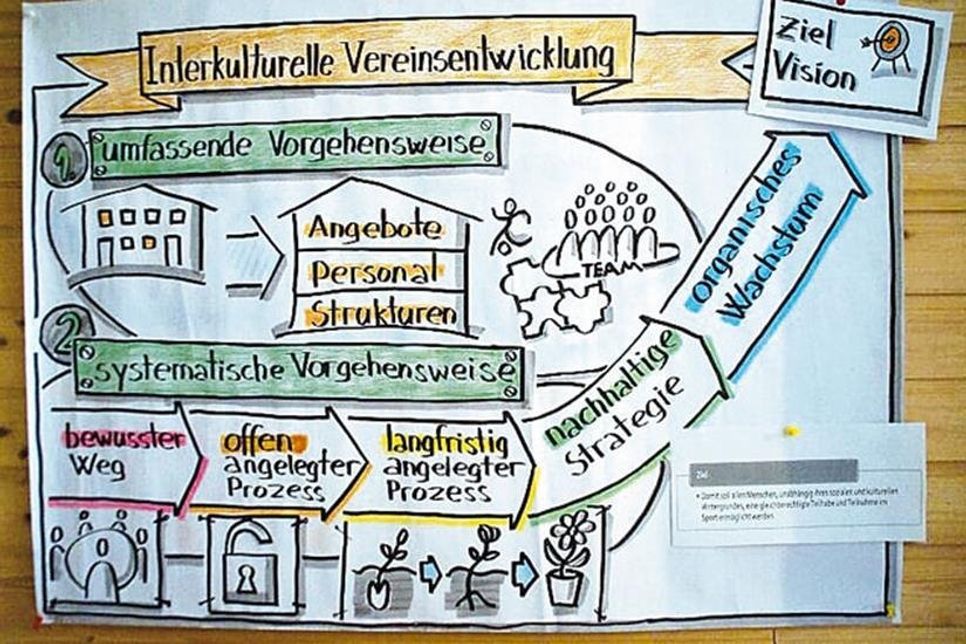 Interkulturelle Vereinsentwicklung
Ziel
Vision
1.
umfassende Vorgehensweise
Angebote
Personal
Strukturen
TEAM
2
systematische Vorgehensweise
bewusster
Weg
offen
angelegter
Prozess
langfristig
angelegter
Prozess
nachhaltige
Strategie
organisches
Wachstum
Ziel
• Damit soll allen Menschen, unabhängig ihres sozialen und kulturellen
Hintergrundes, eine gleichberechtigte Teilhabe und Teilnahme im
Sport ermöglicht werden.